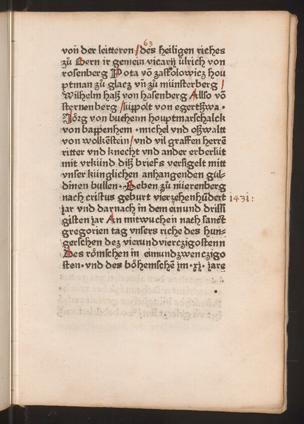 63
von der leitteron / des heiligen riches
zu Bern ir gemein vicarÿ ůlrich von
rosenberg Pota vō zastolowicz hou
ptman zu glacz vn̄ zu münsterberg /
Wilhelm hasz von hasenberg Allso vō
sternenberg / lüppolt von
Jörg von buchenn houptmarschalck
von bappenhem · michel vnd oszwaltt
von wolkēstein / vnd vil graffen herrē
ritter vnd knecht vnd ander erberlüt
mit vrkünd disz brieffs versigelt mitt
vnser künglichen anhangenden gul-
dinen bullen · Geben zu nüerenberg
nach cristus geburt vierzehenhüdert
jar vnd darnach in dem ein vnd drissi 1431:
gisten jar An mitwuchen nach sanct
gregorien tag vnsers riche des hun
gerschen des vierundvierczigostenn
Des römschen in einundzwenczigo
sten · vnd des böhemschē jm · xj · jare